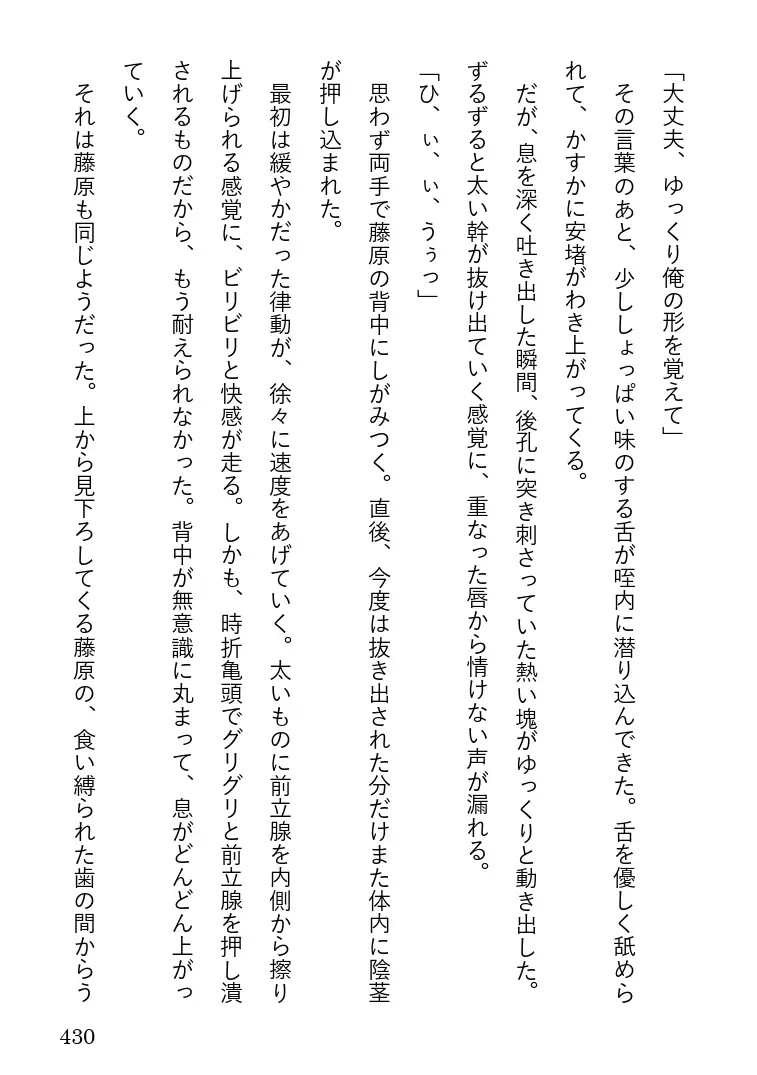 「大丈夫、ゆっくり俺の形を覚えて」
　その言葉のあと、少ししょっぱい味のする舌が咥内に潜り込んできた。舌を優しく舐めら
れて、かすかに安堵がわき上がってくる。
　だが、息を深く吐き出した瞬間、後孔に突き刺さっていた熱い塊がゆっくりと動き出した。
ずるずると太い幹が抜け出ていく感覚に、重なった唇から情けない声が漏れる。
「ひ、ぃ、ぃ、うぅっ」
　思わず両手で藤原の背中にしがみつく。直後、今度は抜き出された分だけまた体内に陰茎
が押し込まれた。
　最初は緩やかだった律動が、徐々に速度をあげていく。太いものに前立腺を内側から擦り
上げられる感覚に、ビリビリと快感が走る。しかも、時折亀頭でグリグリと前立腺を押し潰
されるものだから、もう耐えられなかった。背中が無意識に丸まって、息がどんどん上がっ
ていく。
　それは藤原も同じようだった。上から見下ろしてくる藤原の、食い縛られた歯の間からう
430